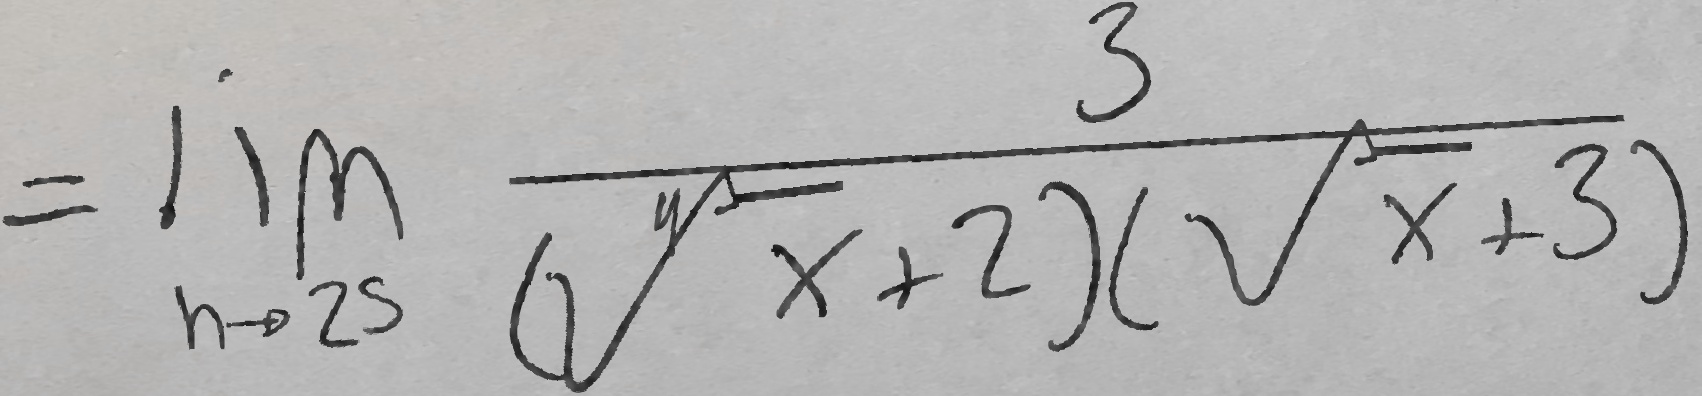 = lim_{h→25} \frac{3}{(\sqrt[y]{x}+2)(\sqrt{x}+3)}